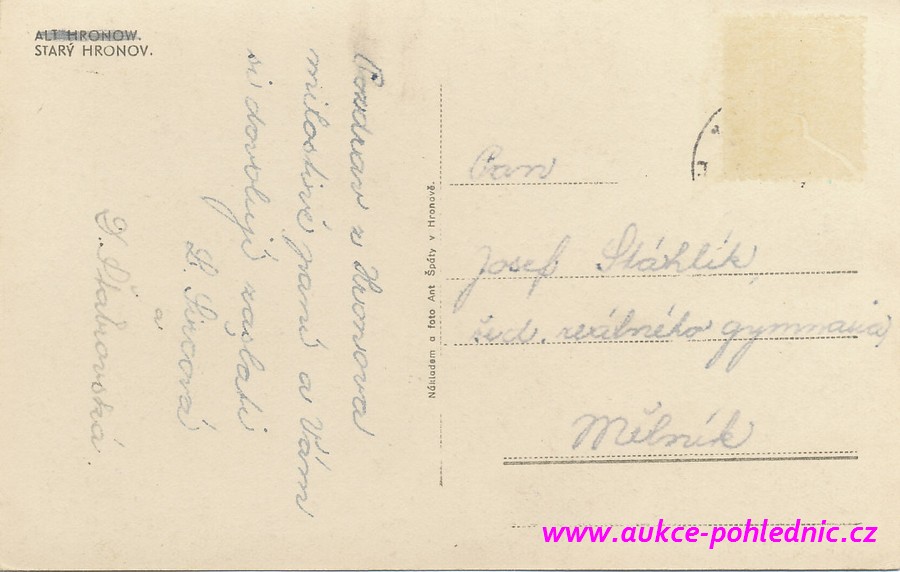 ALT HRONOW.
STARÝ HRONOV.
Pozdrav z Hronova
milostivé paní a Vám
si dovolují zaslati
L. Sirová
a
Nákladem a foto Ant Špáty v Hronově.
Pan
Josef Stáhlík,
řed. reálného gymnasia,
Mělník
www.aukce-pohlednic.cz